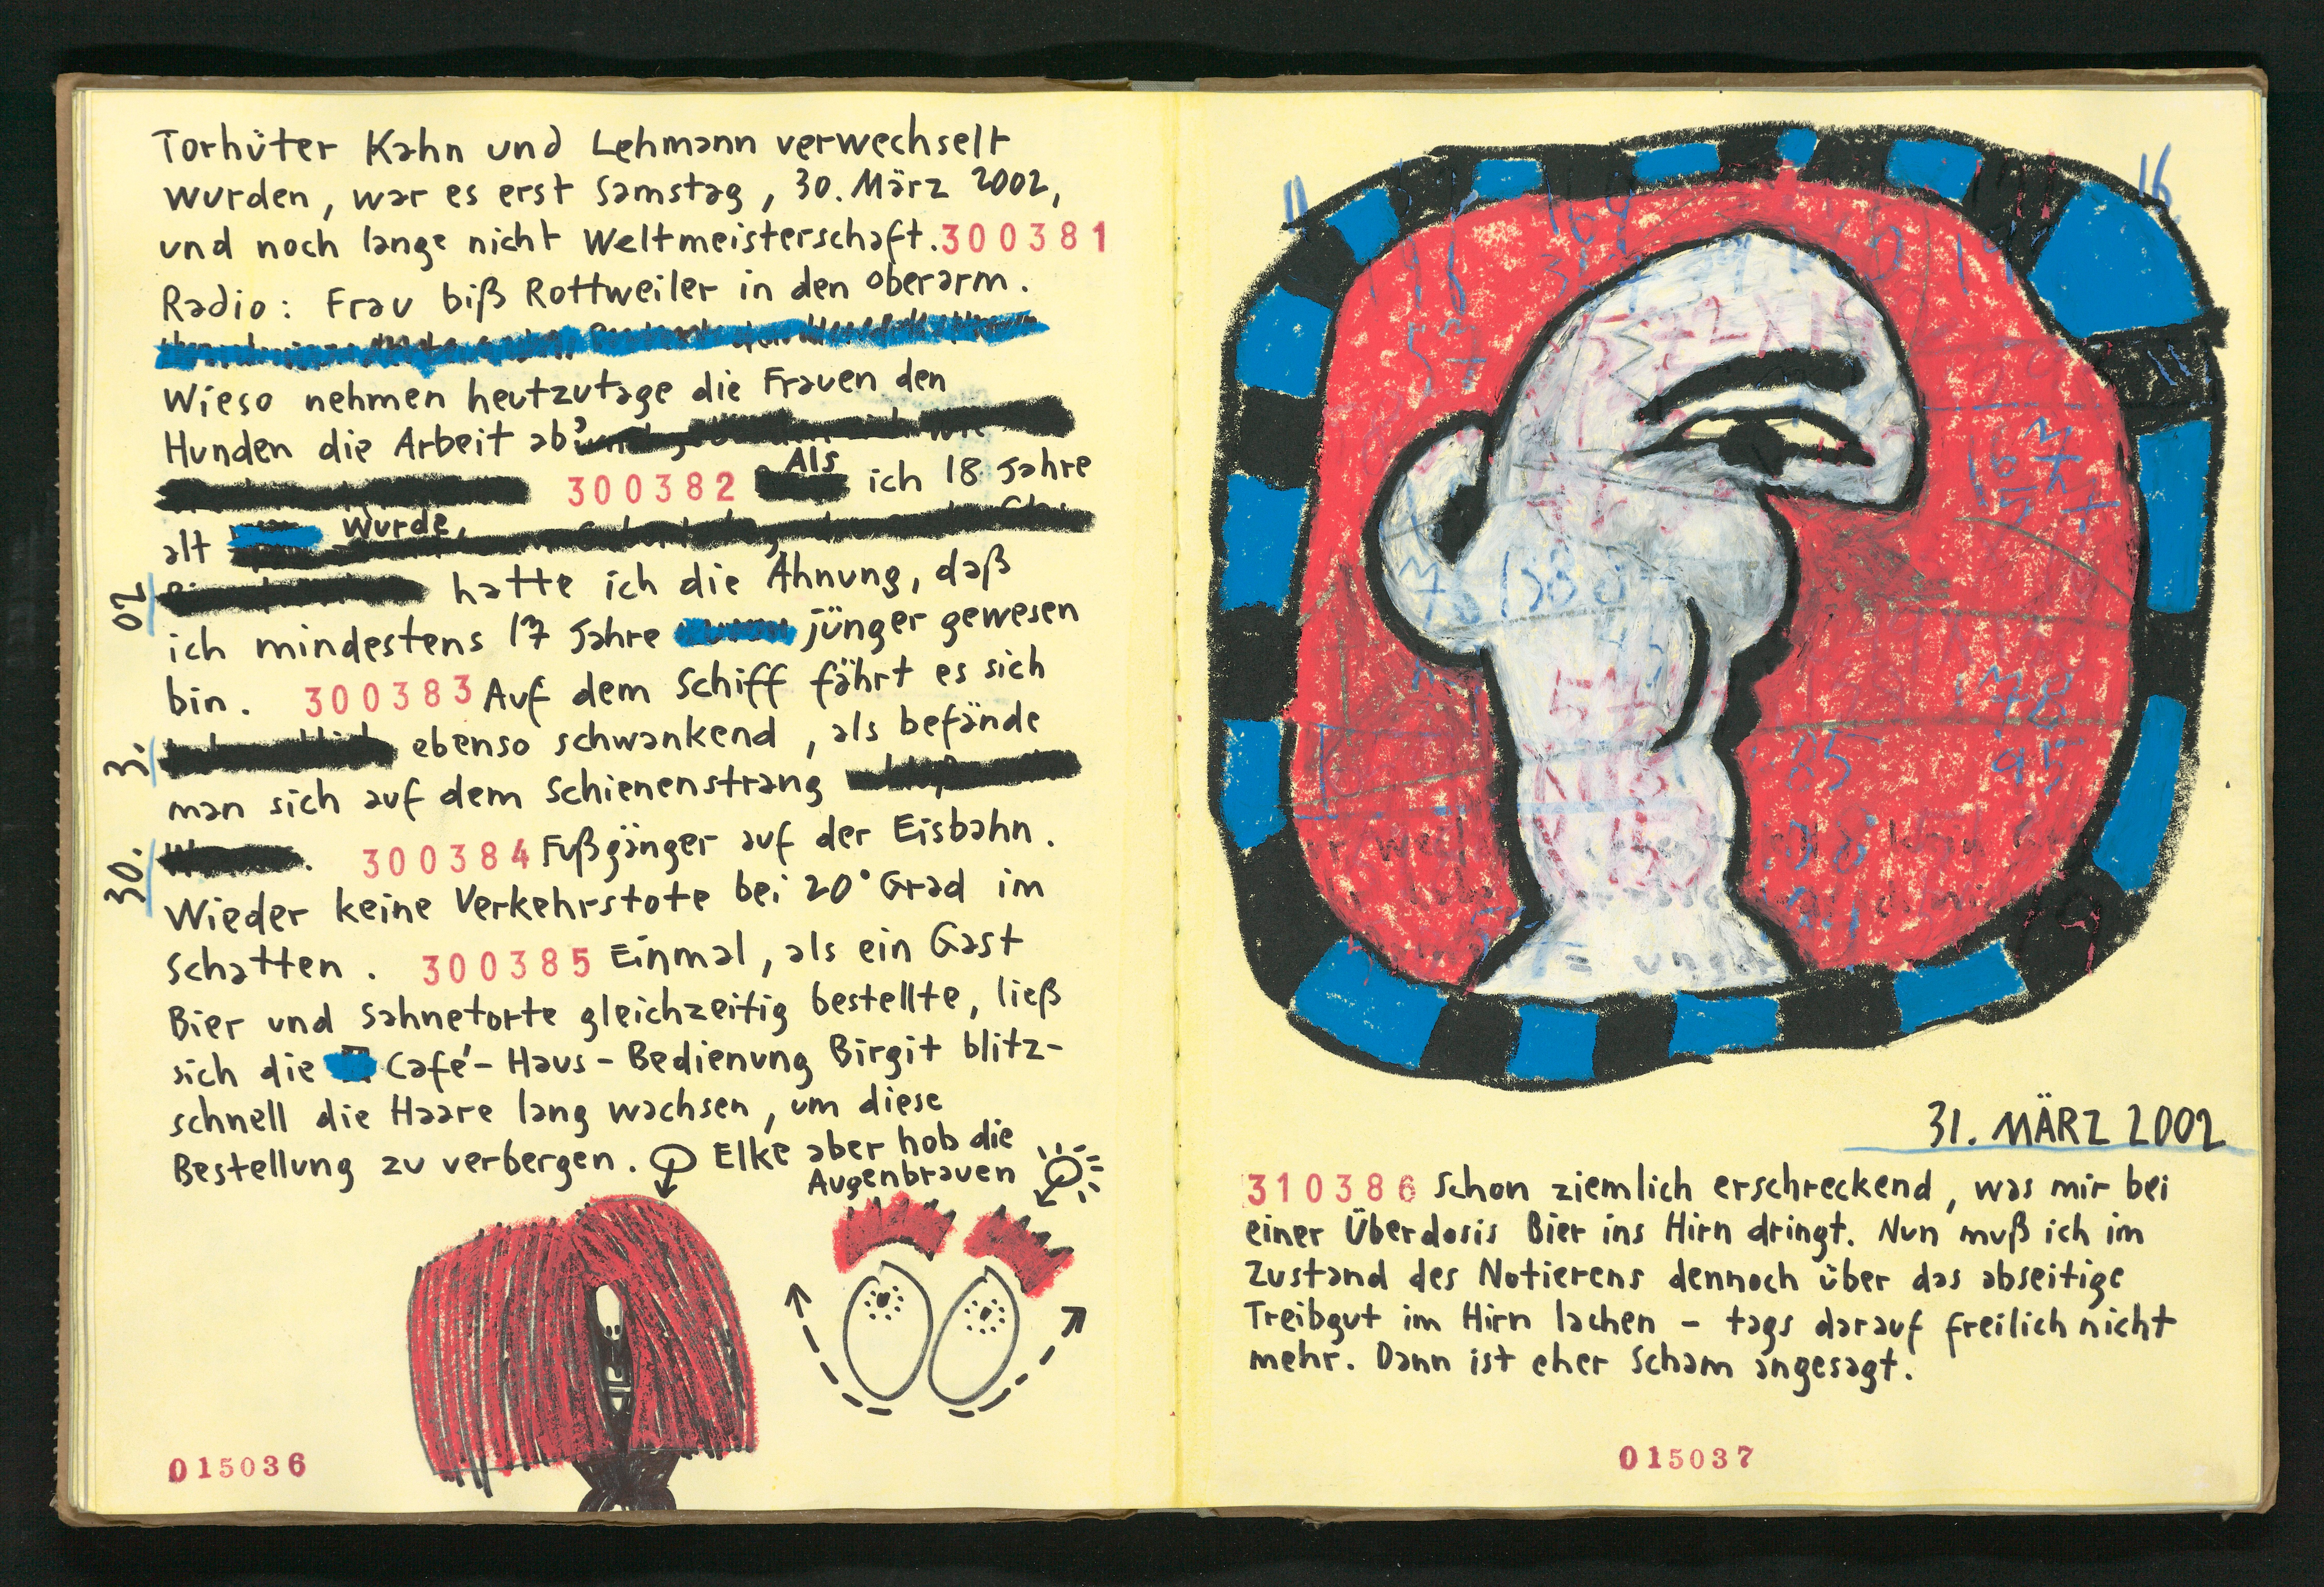 Torhüter Kahn und Lehmann verwechselt
wurden, war es erst Samstag, 30. März 2002,
und noch lange nicht Weltmeisterschaft. 300381
Radio: Frau biß Rottweiler in den Oberarm.
Wieso nehmen heutzutage die Frauen den
Hunden die Arbeit ab?
300382 Als ich 18 Jahre
alt wurde,
hatte ich die Ahnung, daß
ich mindestens 17 Jahre jünger gewesen
bin. 300383 Auf dem Schiff fährt es sich
ebenso schwankend, als befände
man sich auf dem Schienenstrang
. 300384 Fußgänger auf der Eisbahn.
Wieder keine Verkehrstote bei 20° Grad im
Schatten. 300385 Einmal, als ein Gast
Bier und Sahnetorte gleichzeitig bestellte, ließ
sich die Café-Haus-Bedienung Birgit blitz-
schnell die Haare lang wachsen, um diese
Bestellung zu verbergen. Elke aber hob die
Augenbrauen
30. 3. 02
015036
16
31. MÄRZ 2002
310386 Schon ziemlich erschreckend, was mir bei
einer Überdosis Bier ins Hirn dringt. Nun muß ich im
Zustand des Notierens dennoch über das abseitige
Treibgut im Hirn lachen – tags darauf freilich nicht
mehr. Dann ist eher Scham angesagt.
015037